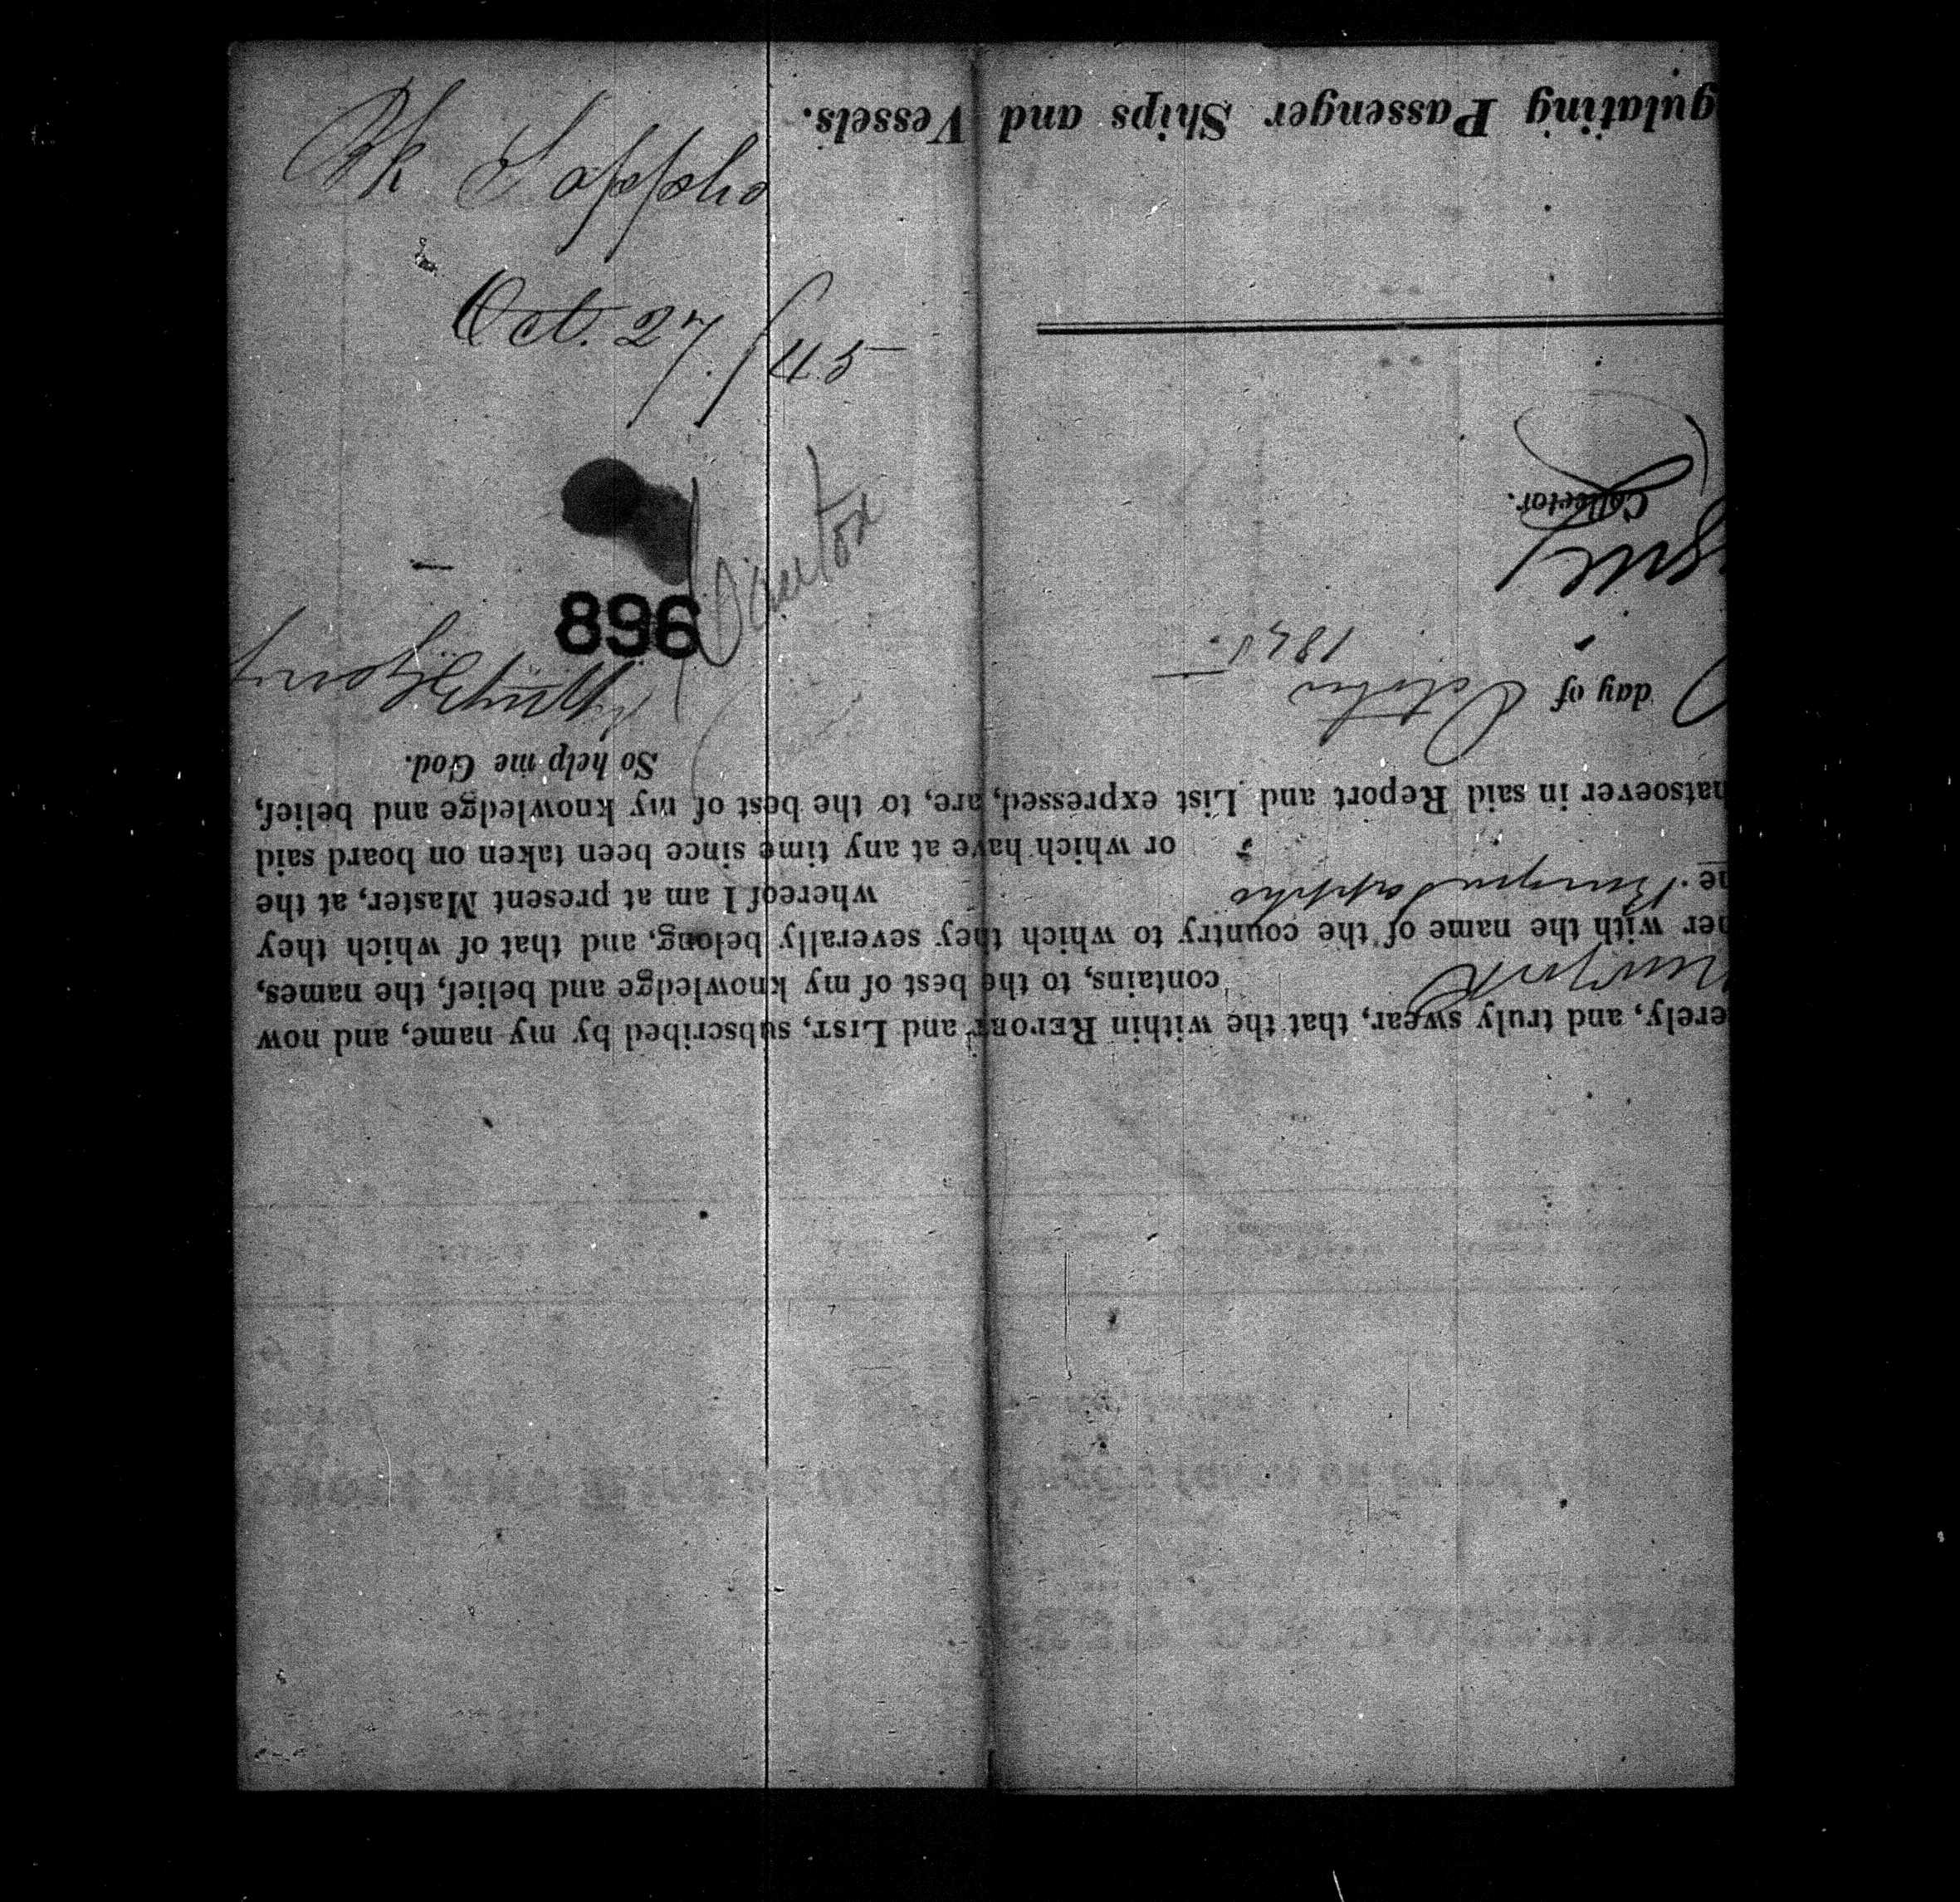 Bk Sappho
Oct. 27/45
896
erely, and truly swear, that the within REPORT and LIST, subscribed by my name, and now
contains, to the best of my knowledge and belief, the names,
her with the name of the country to which they severally belong, and that of which they
he Sappho whereof I am at present Master, at the
or which have at any time since been taken on board said
hatsoever in said Report and List expressed, are, to the best of my knowledge and belief,
So help me God.
day of October 1845.
Collector.
gulating Passenger Ships and Vessels.